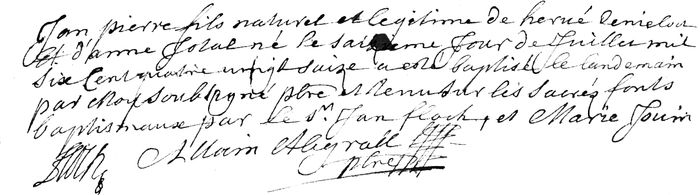 Jan pierre fils naturel et legitime de hervé
et d'anne né le jour de Juillet mil
six Cent quatre vingt saize a esté baptisé le landemain
par Moy soubsigné ptre et tenu sur les sacrés fonts
baptismaux par le Sr Jan floch, et Marie Jouin
Allain
ptre